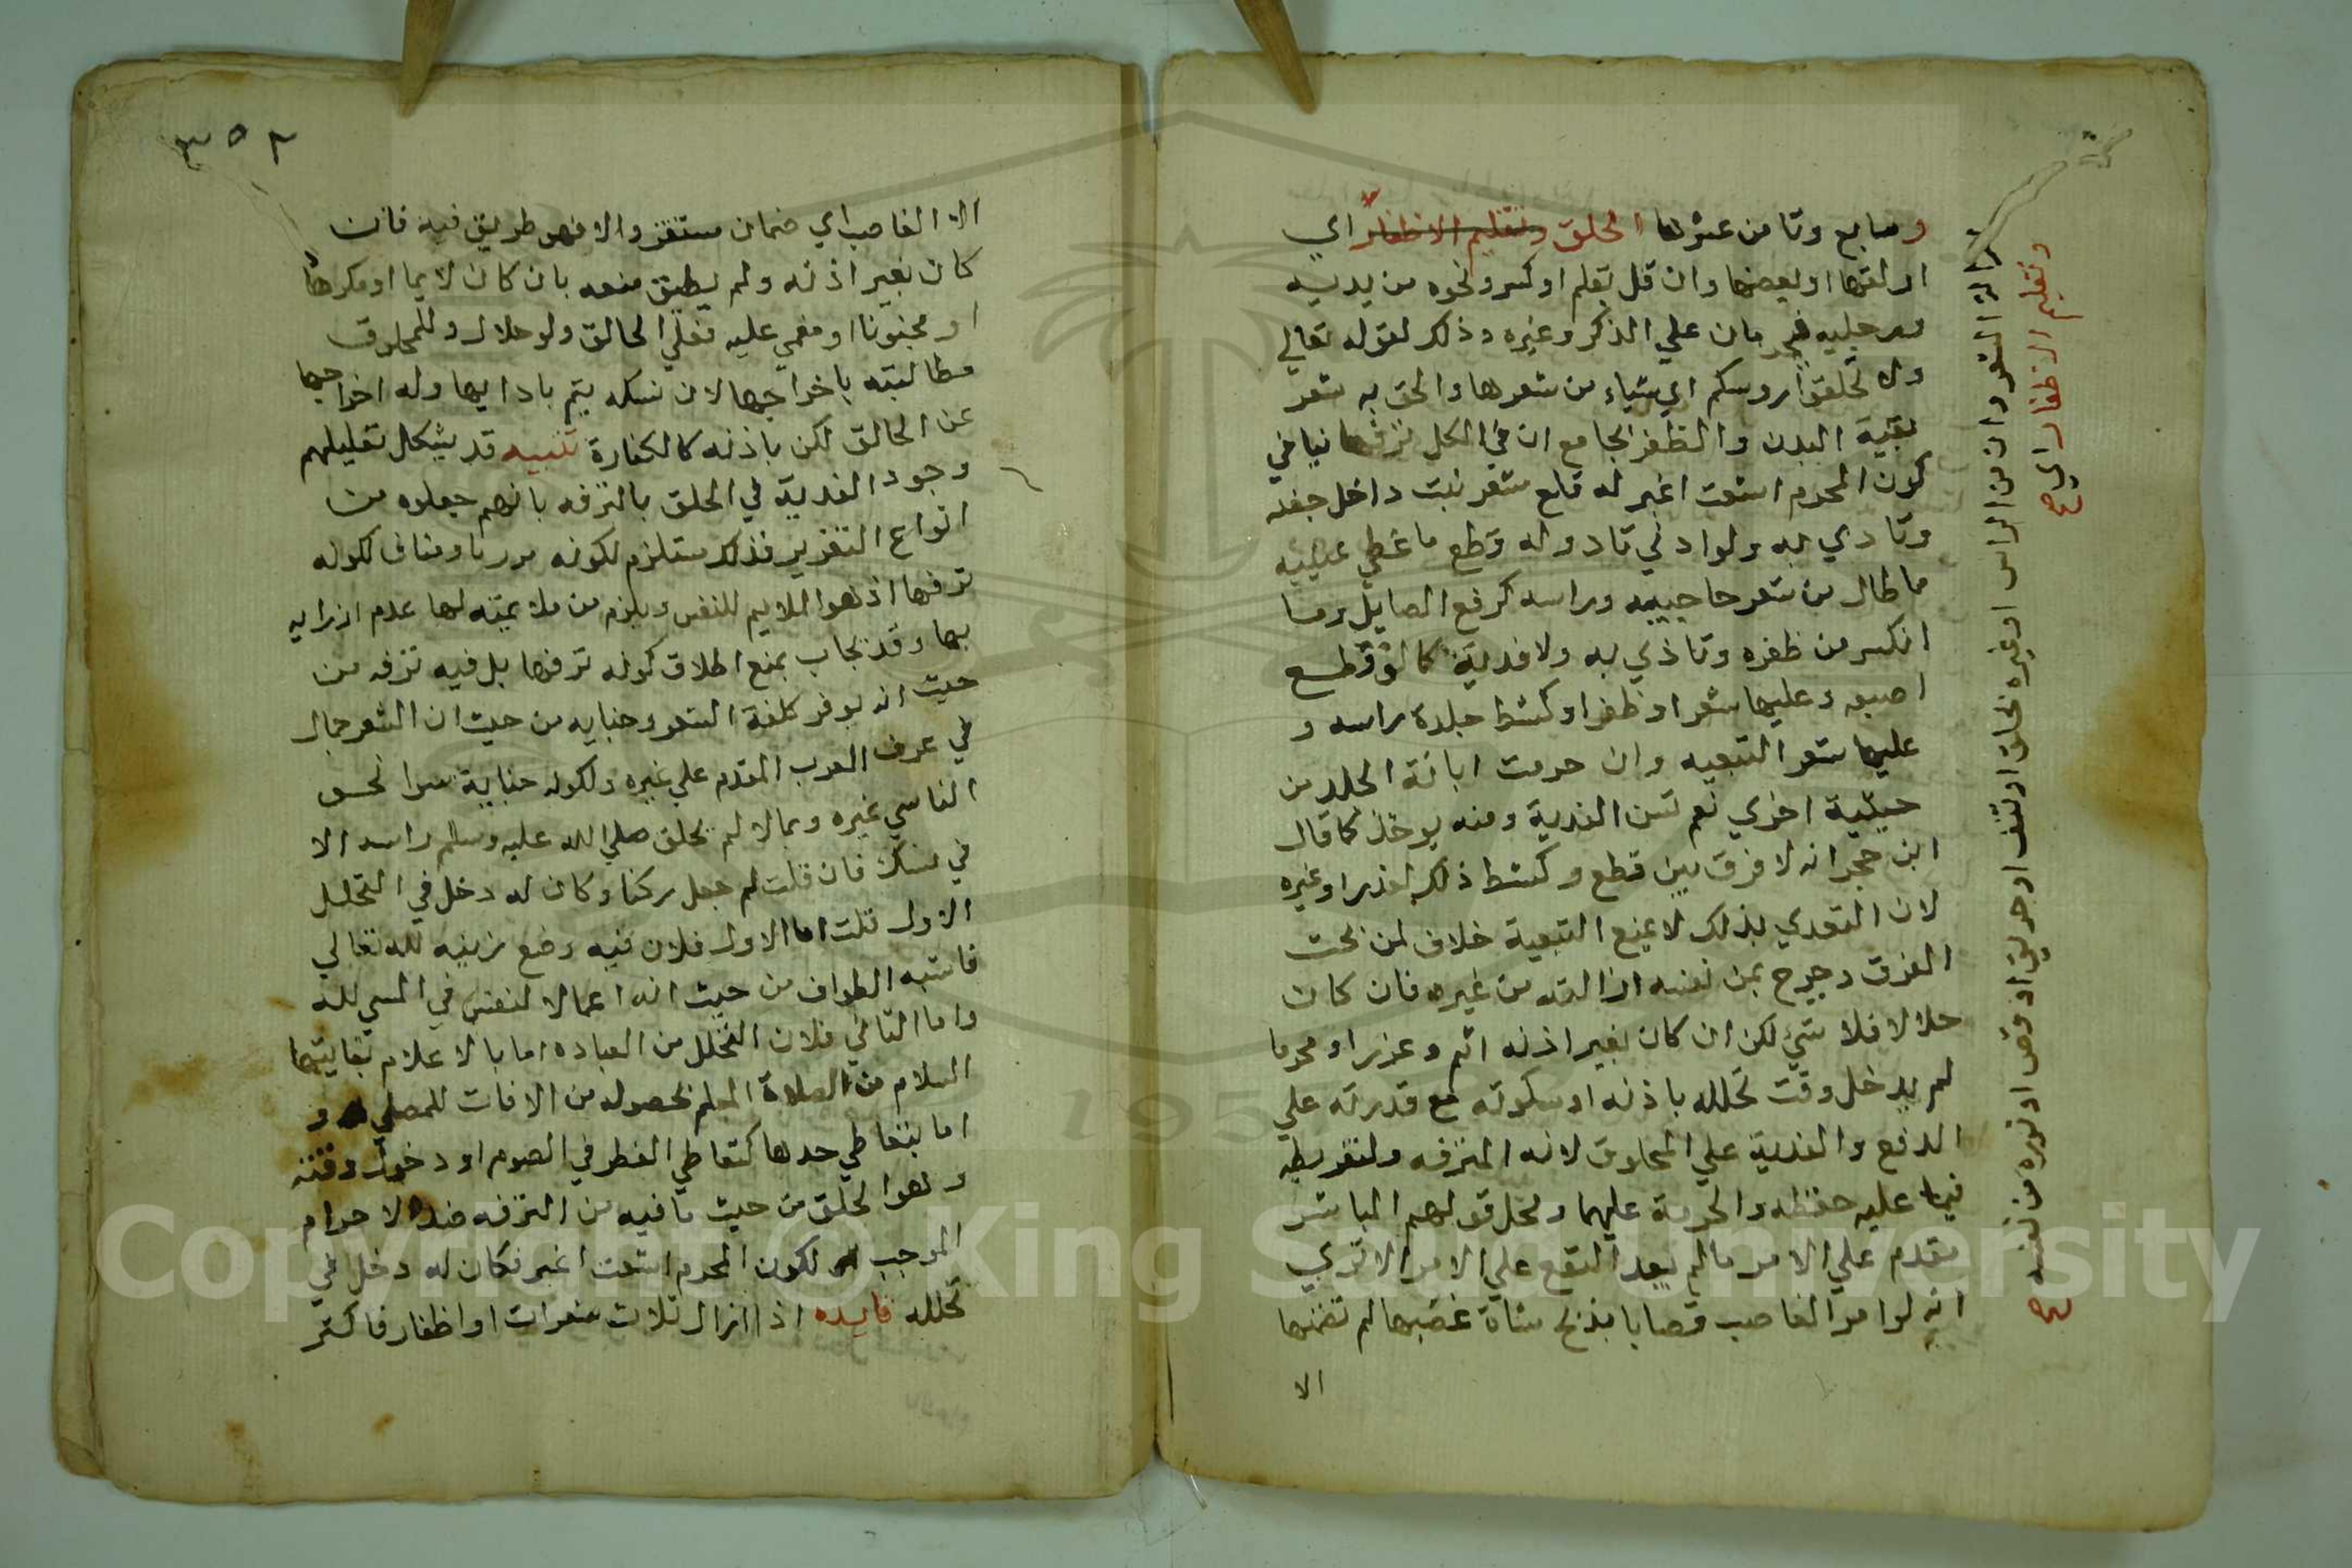 وسابع وثامن عشرها الحلق وتقليم الاظفار اي
ازالتها او بعضها وان قل بقلم او كسر ونحوه من يديه
ورجليه فيحرمان علي الذكر وغيره وذلك لقوله تعالي
ولا تحلقوا روسكم اي شياء من شعرها والحق به شعر
بقية البدن والظفر بجامع ان في الكل ترفها ينافي
كون المحرم اشعث اغبر له قلع شعر نبت داخل جفنه
وتاذي به ولو ادني تاذ وله قطع ما غطي عينيه
مما طال من شعر حاجبيه وراسه كرفع الصايل وما
انكسر من ظفره وتاذي به ولا فدية كما لو قطع
اصبعه وعليها شعر او ظفر او كشط جلدة راسه و
عليها شعر التبعيه وان حرمت ابانة الجلد من
حيثية اخري نعم تسن الفدية ومنه يوخذ كما قال
ابن حجر انه لا فرق بين قطع وكشط ذلك لعذر او غيره
لان التعدي بذلك لا يمنع التبعية خلاف لمن بحث
الفرق وخرج بمن نفسه ازالته من غيره فان كان
حلالا فلا شيء لكن ان كان بغير اذنه اثم وعزر او محرما
لم يدخل وقت تحلله باذنه او سكوته مع قدرته علي
الدفع والفدية علي المحلوق لانه المترفه ولتفريطه
فيما عليه حفظه والحرمة عليهما ومحل قولهم المباشر
مقدم علي الامر مالم يعد النفع علي الامر الا تري
انه لو امر الغاصب قصابا بذبح شاة غصبها لم تضمنها
الا
وتقليم الاظفار اي صح
ازالة الشعر وان من الراس او غيره بحلق او نتف او حرق او قص او نوره من نفسه صح
٣٥٢
الا الغاصب اي ضمان مستقر والا فهو طريق فيه فان
كان بغير اذنه ولم يطق منعه بان كان نايما او مكرها
او مجنونا او مغمي عليه فعلي الحالق ولو حلالا وللمحلوق
مطالبته باخراجها لان نسكه يتم بادايها وله اخراجها
عن الحالق لكن باذنه كالكفارة تنبيه قد يشكل تعليلهم
وجود الفدية في الحلق بالترفه بانهم جعلوه من
انواع التعزير فذلك مستلزم لكونه مزريا ومناف لكونه
ترفها اذ هو الملايم للنفس ويلزم من ملايمته لها عدم ازرايه
بها وقد يجاب بمنع اطلاق كونه ترفها بل فيه ترفه من
حيث انه يوفر كلفة الشعر وجنايه من حيث ان الشعر جمال
في عرف العرب المقدم علي غيره ولكونه جناية سوا نحو
الناسي غيره وبمالا لم يحلق صلي الله عليه وسلم راسه الا
في نسك فان قلت لم جعل ركنا وكان له دخل في التحلل
الاول قلت اما الاول فلان فيه وضع زينه لله تعالي
فاشبه الطواف من حيث انه اعمالا لنفس في المسي لله
واما الثاني فلان التحلل من العباده اما بالاعلام بغايتها
السلام من الصلاة المعلم بحصوله من الافات للمصلي و
اما بتعاطي ضدها كتعاطي الفطر في الصوم او دخول وقته
وهو الحلق من حيث ما فيه من الترفه ضد الاحرام
الموجب لكون المحرم اشعث اغبر فكان له دخل في
تحلله فايده اذا ازال ثلاث شعرات او اظفار فاكثر